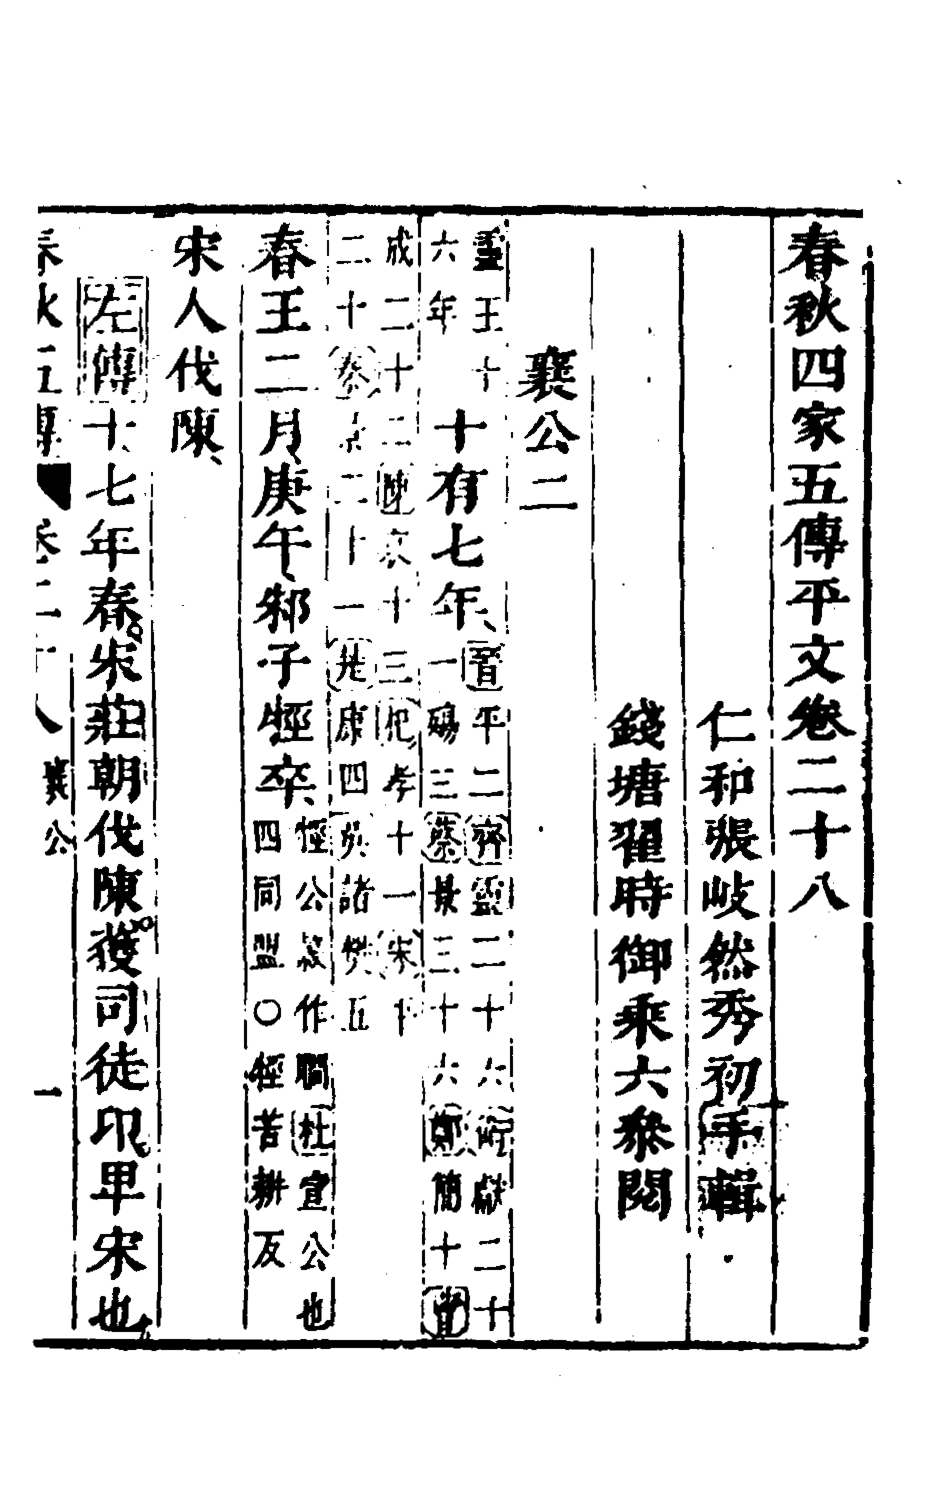 春秋四家五傳平文卷二十八
仁和張岐然秀初手輯
錢塘翟時御乘六叅閱
襄公二
靈王十
六年
十有七年
晉平二齊靈二十六衛獻二十
一殤三蔡景三十六鄭簡十曹
成二十二陳哀十三杞孝十一宋平
二十秦景二十一楚康四吳諸樊五
春王二月庚午邾子牼卒
牼公羊作瞯杜宣公也
四同盟○牼苦耕反
宋人伐陳
左傳十七年春宋莊朝伐陳獲司徒卬卑宋也
春秋五傳 卷二十八 襄公 一